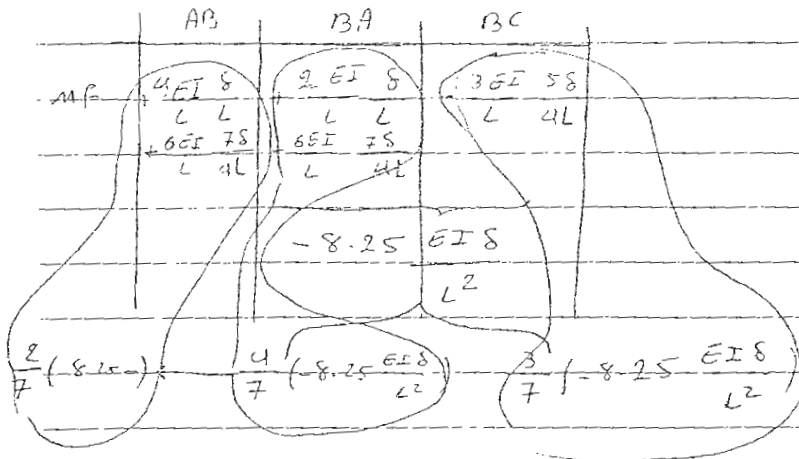 AB BA BC
MF + 4EI/L δ/L + 2EI/L δ/L 3EI/L 5δ/4L
+ 6EI/L 7δ/4L + 6EI/L 7δ/4L
-8.25 EIδ/L²
2/7 (-8.25 ) 4/7 (-8.25 EIδ/L²) 3/7 (-8.25 EIδ/L²